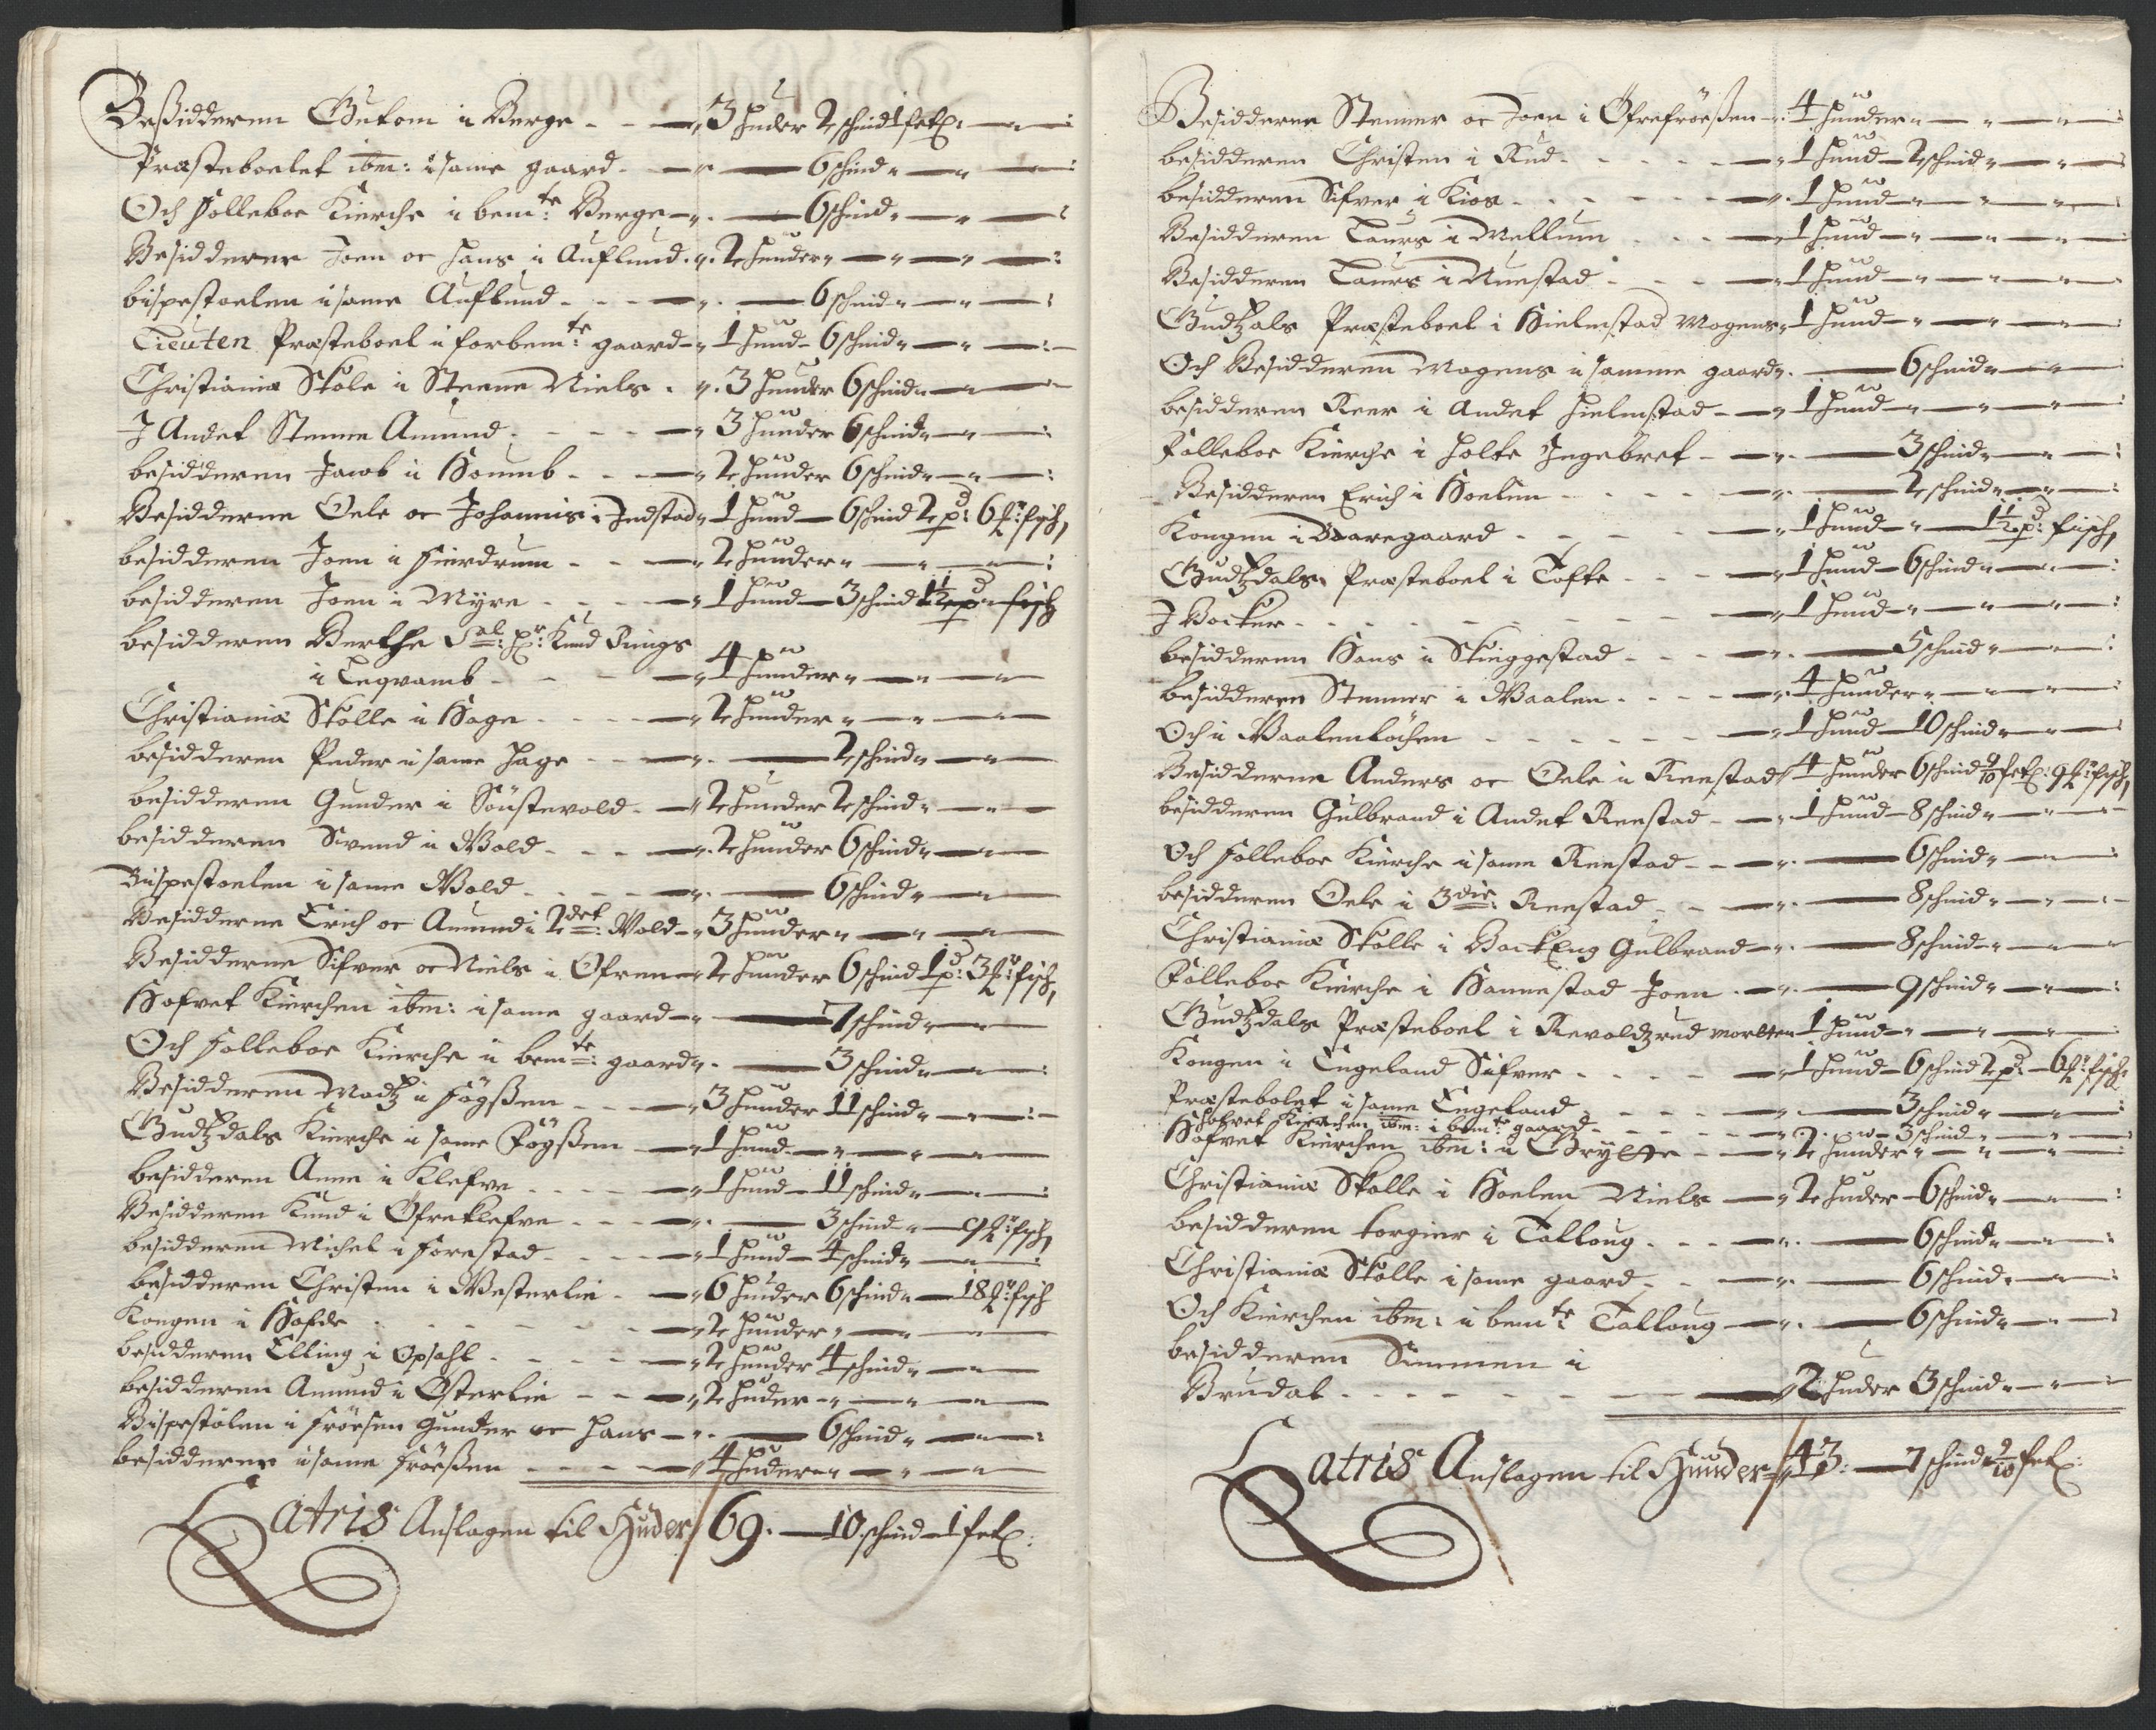 Besidderen Guttom i Berge - - 3 huder 2 schind 1 setz:
Præsteboelet ibm: i same gaard - 6 schind
Och Folleboe Kierche i bemte: Berge - 6 schind
Besidderne Joen oc Hans i Auflund - 2 huder
bispestoelen i same Auflund - - - 6 schind
Lieuten Præsteboel i forbemte: gaard - 1 hud - 6 schind
Christianiæ Skole i Steene Niels - 3 huder 6 schind
J Andet Steene Amund - - - 3 huder 6 schind
besidderen Jacob i Houmb - - - 2 huder 6 schind
Besidderne Oele oc Johannis i Jndstad 1 hud - 6 schind 2 pd: 6 fisch
besidderen Joen i Fierdrum - - - 2 huder
besidderen Joen i Myre - - - 1 hud - 3 schind 1½ pd fisch
besidderen Berthe Sal: Hr: Knud Rings
i Segvamb - - - 4 huder
Christianiæ Skolle i Hage - - - 2 huder
besidderen Peder i same Hage - - - 2 schind
besidderen Gunder i Sönstevold - 2 huder 2 schind
besidderen Svend i Vold - - - 2 huder 6 schind
Bispestoelen i same Vold - - - 6 schind
Besidderne Erich oc Amund i 2det: Vold - 3 huder
Besidderne Sifver oc Niels i Öfren - 2 huder 6 schind 1 pd: 3 fisch
Hofvet Kierchen ibm: i same gaard - 7 schind
Och Folleboe Kierche i bemte: gaard - 3 schind
Besidderen Madtz i Fögßen - - - 3 huder 11 schind
Gudtzdals Kierche i same Fögßen - 1 hud
besidderen Anne i Klefve - - - 1 hud - 11 schind
Besidderen Knud i Öfreklefve - - - 3 schind - 9 fisch
besidderen Michel i Forestad - - - 1 hud - 4 schind
besidderen Christen i Vesterlie - 6 huder 6 schind - 18 fisch
Kongen i Hofde - - - 2 huder
besidderen Elling i Opsahl - - - 2 huder 4 schind
besidderen Amund i Österlie - - - 2 huder
Bispestolen i Fröesen Gunder oc Hans - 6 schind
besidderne i same Fröeßen - - - 4 huder
Latris Anslagen til Huder 69. - 10 schind - 1 setz:
Besidderne Steener oc Joen i Öfrefröeßen - 4 huder
besidderen Christen i Rud - - - 1 hud - 2 schind
besidderen Sifver i Kios - - - 1 hud
Besidderen Laurs i Mellum - - - 1 hud
Besidderen Laurs i Nuestad - - - 1 hud
Gudtzals Præsteboel i Hielmstad Mogens - 1 hud
Och Besidderen Mogens i samme gaard - 6 schind
besidderen Reer i Andet Hielmstad - 1 hud
Folleboe Kierche i Holte Jngebret - 3 schind
Besidderen Erich i Hoelen - - - 2 schind
Kongen i Baaregaard - - - 1 hud - 1½ pd: fisch
Gudtzdals Præsteboel i Tofte - - - 1 hud - 6 schind
J Bocker - - - 1 hud
besidderen Hans i Skieggestad - - - 5 schind
besidderen Steener i Vaalen - - - 4 huder
Och i Vaalenlöchen - - - 1 hud - 10 schind
Besidderne Anders oc Oele i Reestad 4 huder 6 schind 9/10 setz: 9 fisch
besidderen Gulbrand i Andet Reestad - 1 hud - 8 schind
Och Folleboe Kierche i same Reestad - 6 schind
besidderen Oele i 3die: Reestad - - 8 schind
Christianiæ Skolle i Backeng Gulbrand - 8 schind
Folleboe Kierche i Hannestad Joen - 9 schind
Gudtzdals Præsteboel i Revoldzrud Morthen 1 hud
Kongen i Engeland Sifver - - - 1 hud - 6 schind 2 pd - 6 fisch
Præstebolet i same Engeland - - - 3 schind
Hofvet Kierchen ibm: i bemte gaard - - - 3 schind
Hofvet Kierchen ibm: i Grytte - - 2 huder
Christianiæ Skolle i Hoelen Niels - 2 huder - 6 schind
besidderen Torgier i Talloug - - - 6 schind
Christianiæ Skolle i same gaard - - 6 schind
Och Kierchen ibm: i bemte: Talloug - 6 schind
besidderen Simmen i
Brudal - - - 2 huder 3 schind
Latris Anslagen til Huuder 43: - 7 schind 9/10 setz: